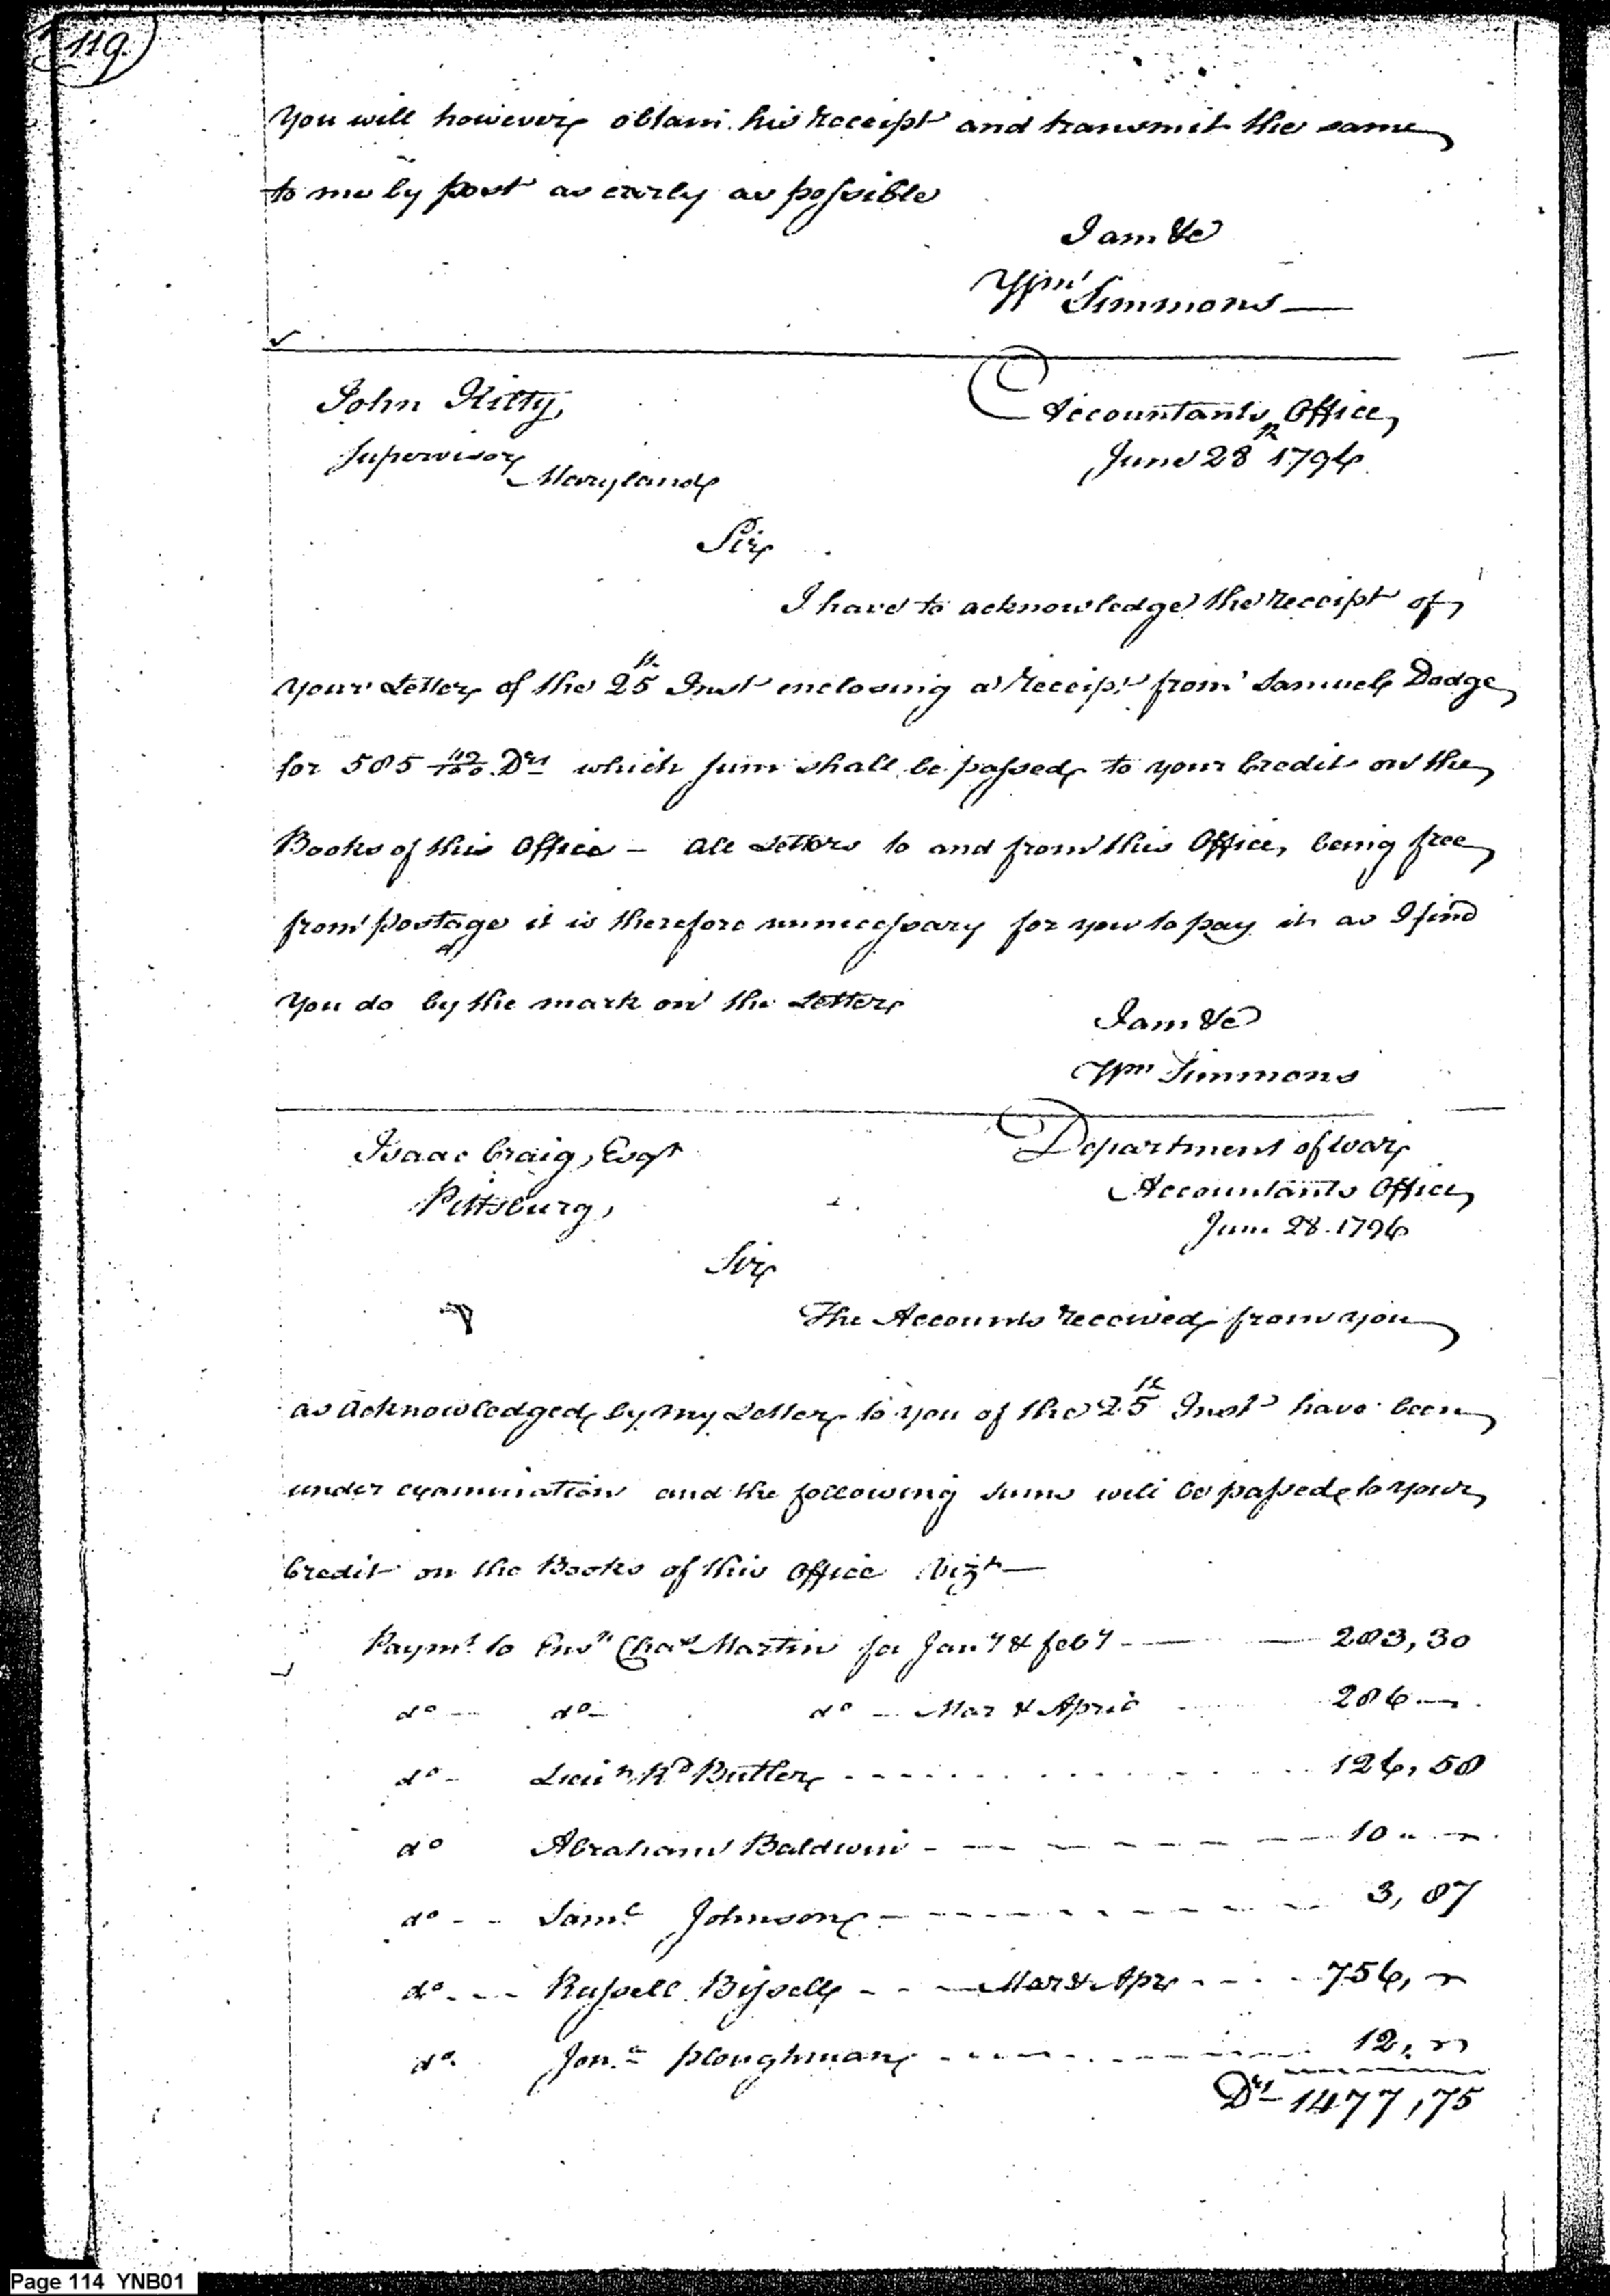 119.
You will however obtain his receipt and transmit the same
to me by post as early as possible
I am &c
Wm Simmons
John Kilty,
Supervisor
Maryland
Accountants Office,
June 28th 1796
Sir
I have to acknowledge the receipt of
your Letter of the 25th Inst enclosing a receipt from Samuel Dodge
for 585 Drs which sum shall be passed to your Credit on the
Books of this Office – All Letters to and from this Office, being free
from postage it is therefore unnecessary for you to pay it as I find
You do by the mark on the Letter
I am &c
Wm Simmons
Isaac Craig, Esqr
Pittsburg,
Department of War
Accountants Office,
June 28. 1796
Sir
The Accounts received from you
as acknowledged by my Letter to you of the 25th Inst have been
under examination and the following sums will be passed to your
Credit on the Books of this Office Vizt —
Paymt. to Ensn Chas Martin for Jany & feby - — — 283,30
do — do — do — Mar & April 286 —
do - Lieut. Rd Butler - - - - 126,58
do Abraham Baldwin - — — — 10 "
do - - Saml Johnson - - - - 3,87
do - - - Russell Bissell - - - Mar & Apr - - - 756,
do. Jona Ploughman - - - - 12,
Drs 1477,75
Page 114 YNB01